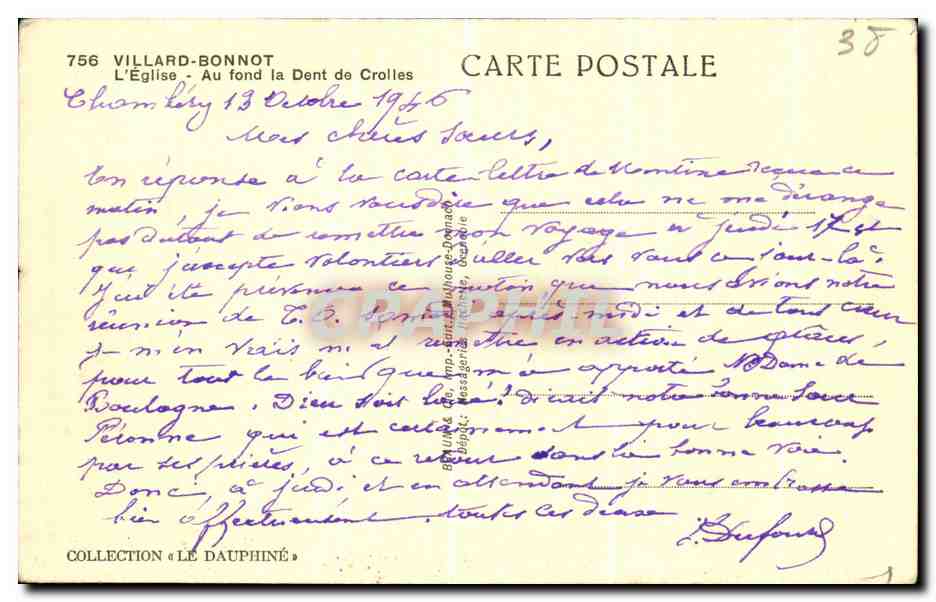 38
756 VILLARD-BONNOT
L'Église - Au fond la Dent de Crolles
CARTE POSTALE
Chambéry 13 Octobre 1946
Mes chères Sœurs,
En réponse à la carte-lettre de reçue ce
matin, je viens vous dire que cela ne me dérange
pas du tout de remettre mon voyage à jeudi 17 et
que j'accepte volontiers d'aller vers vous ce jour-là.
J'ai été prévenue ce matin que nous avions notre
réunion de T.O. après midi et de tout cœur
je m'en vais en action de grâces,
pour tout le bien que m'a apporté N Dame de
Boulogne. Dieu soit loué! dirait notre bonne Sœur
Péronne qui est certainement pour beaucoup
par ses prières, à ce retour dans la bonne voie.
Donc, à jeudi et en attendant je vous embrasse
bien affectueusement toutes les deux
Dufour
BRAUN & Cie, Imp.-Edit., Mulhouse-Dornach
Dépôt: Messageries Hachette, Grenoble
CPAPHIL
COLLECTION « LE DAUPHINÉ »